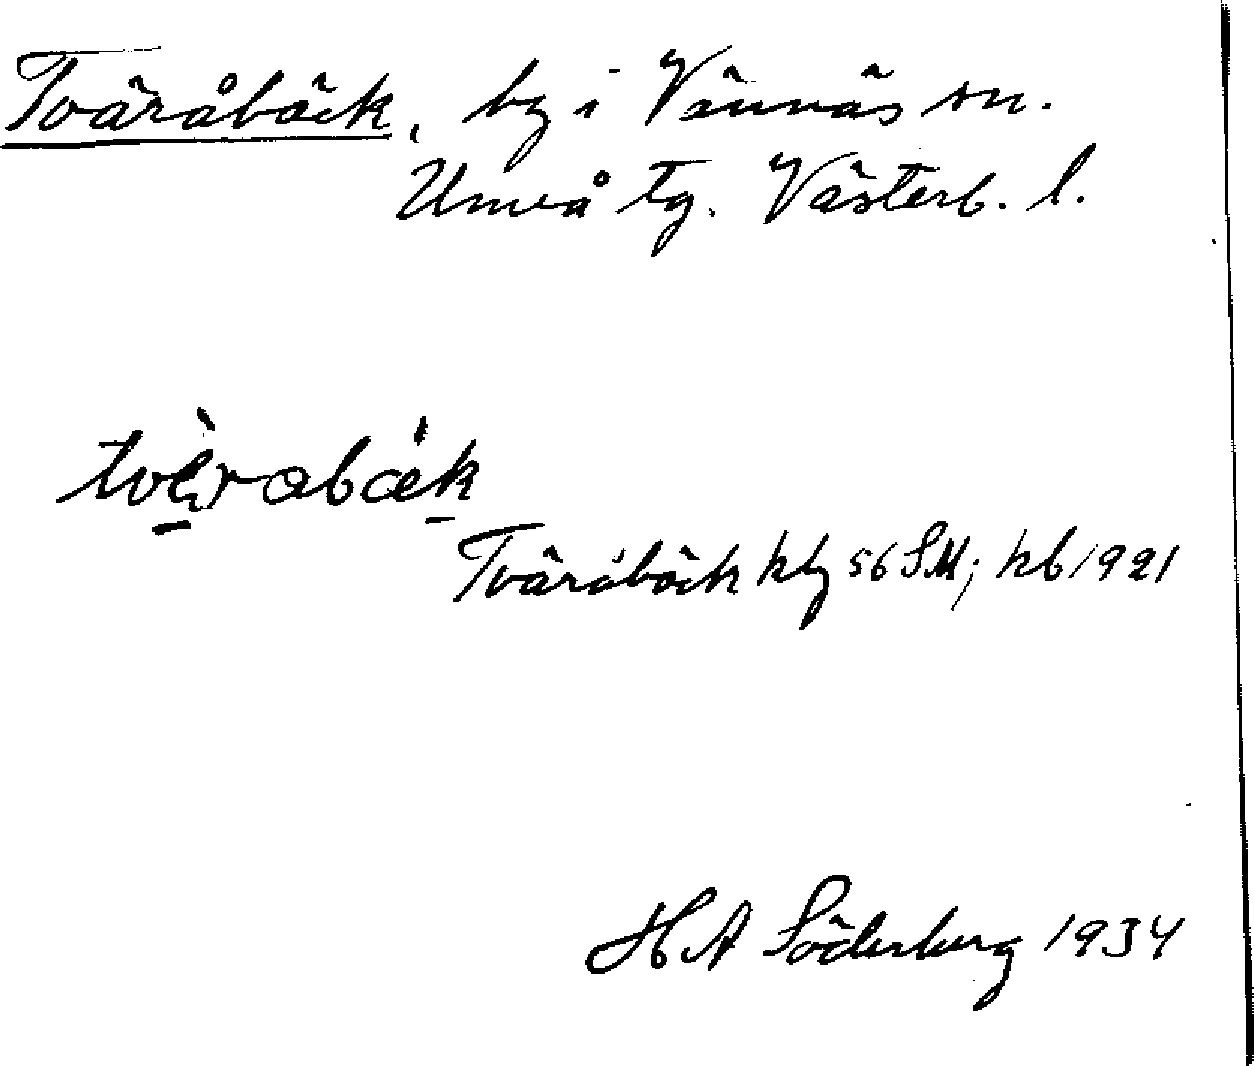 Tväråbäck, by i Vännäs sn.
Umeå tg. Västerb. l.
tvèrabák
Tväråbäck kbg 56 SM; kb 1921
HA Söderberg 1934